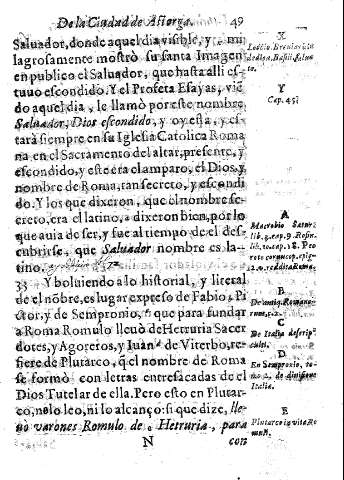 De la Ciudad de Astorga. 49
Saluador, donde aquel dia visible, y mi
lagrosamente mostrò su santa Imagen
en publico el Saluador, que hasta alli es-
tuuo escondido. Y el Profeta Esayas, viē
do aquel dia, le llamò por este nombre
Saluador, Dios escondido, y oy està, y es-
tarà siempre en su Iglesia Catolica Roma
na en el Sacramento del altar, presente, y
escondido, y este era el amparo, el Dios, y
nombre de Roma, tan secreto, y escondi
do. Y los que dixeron, que el nombre se-
creto, era el latino, dixeron bien, por lo
que auia de ser, y fue al tiempo de el des-
cubrirse, que Saluador nombre es la-
tino.
33 Y boluiendo a lo historial, y literal
de el nōbre, es lugar expreso de Fabio, Pi
ctor, y de Sempronio, que para fundar
a Roma Romulo lleuò de Hetruria Sacer
dotes, y Agoreros, y Iuan de Viterbo, re-
fiere de Plutarco, q̃ el nombre de Roma
se formò con letras entresacadas de el
Dios Tutelar de ella. Pero esto en Plutar-
co, no lo leo, ni lo alcanço: si que dize, lle
uò varones Romulo de Hetruria, para
N con
X
Y
Cap. 45.
A
Macrobio Satur.
lib. 3. cap. 9.
B
C
De Italia descrip-
D
En Sempronio,
Italia.
E
Plutarco in vita Ro
mul.